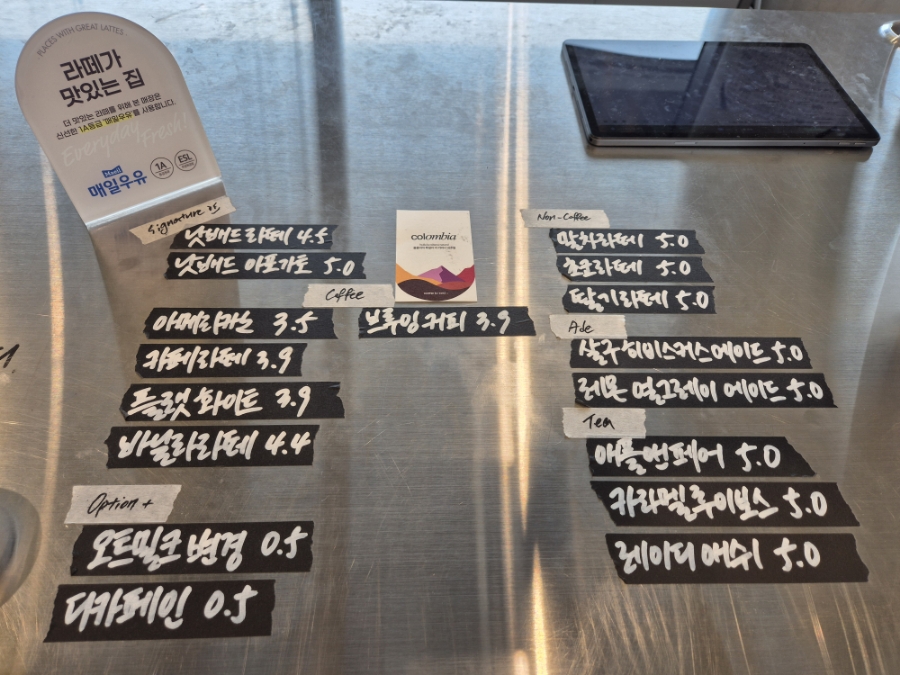 PLACES WITH GREAT LATTES
라떼가
맛있는 집
더 맛있는 라떼를 위해 본 매장은
신선한 1A등급 '매일우유'를 사용합니다.
Everyday Fresh!
Maeil
매일우유
1A
ESL
Signature
넛버드라떼 4.5
넛버드 아포가토 5.0
Coffee
아메리카노 3.5
카페라떼 3.9
플랫화이트 3.9
바닐라라떼 4.4
Option +
오트밀크 변경 0.5
디카페인 0.5
colombia
브루잉커피 3.9
Non-Coffee
말차라떼 5.0
초코라떼 5.0
딸기라떼 5.0
Ade
살구히비스커스에이드 5.0
레몬 얼그레이 에이드 5.0
Tea
애플앤페어 5.0
카라멜루이보스 5.0
레이디애쉬 5.0